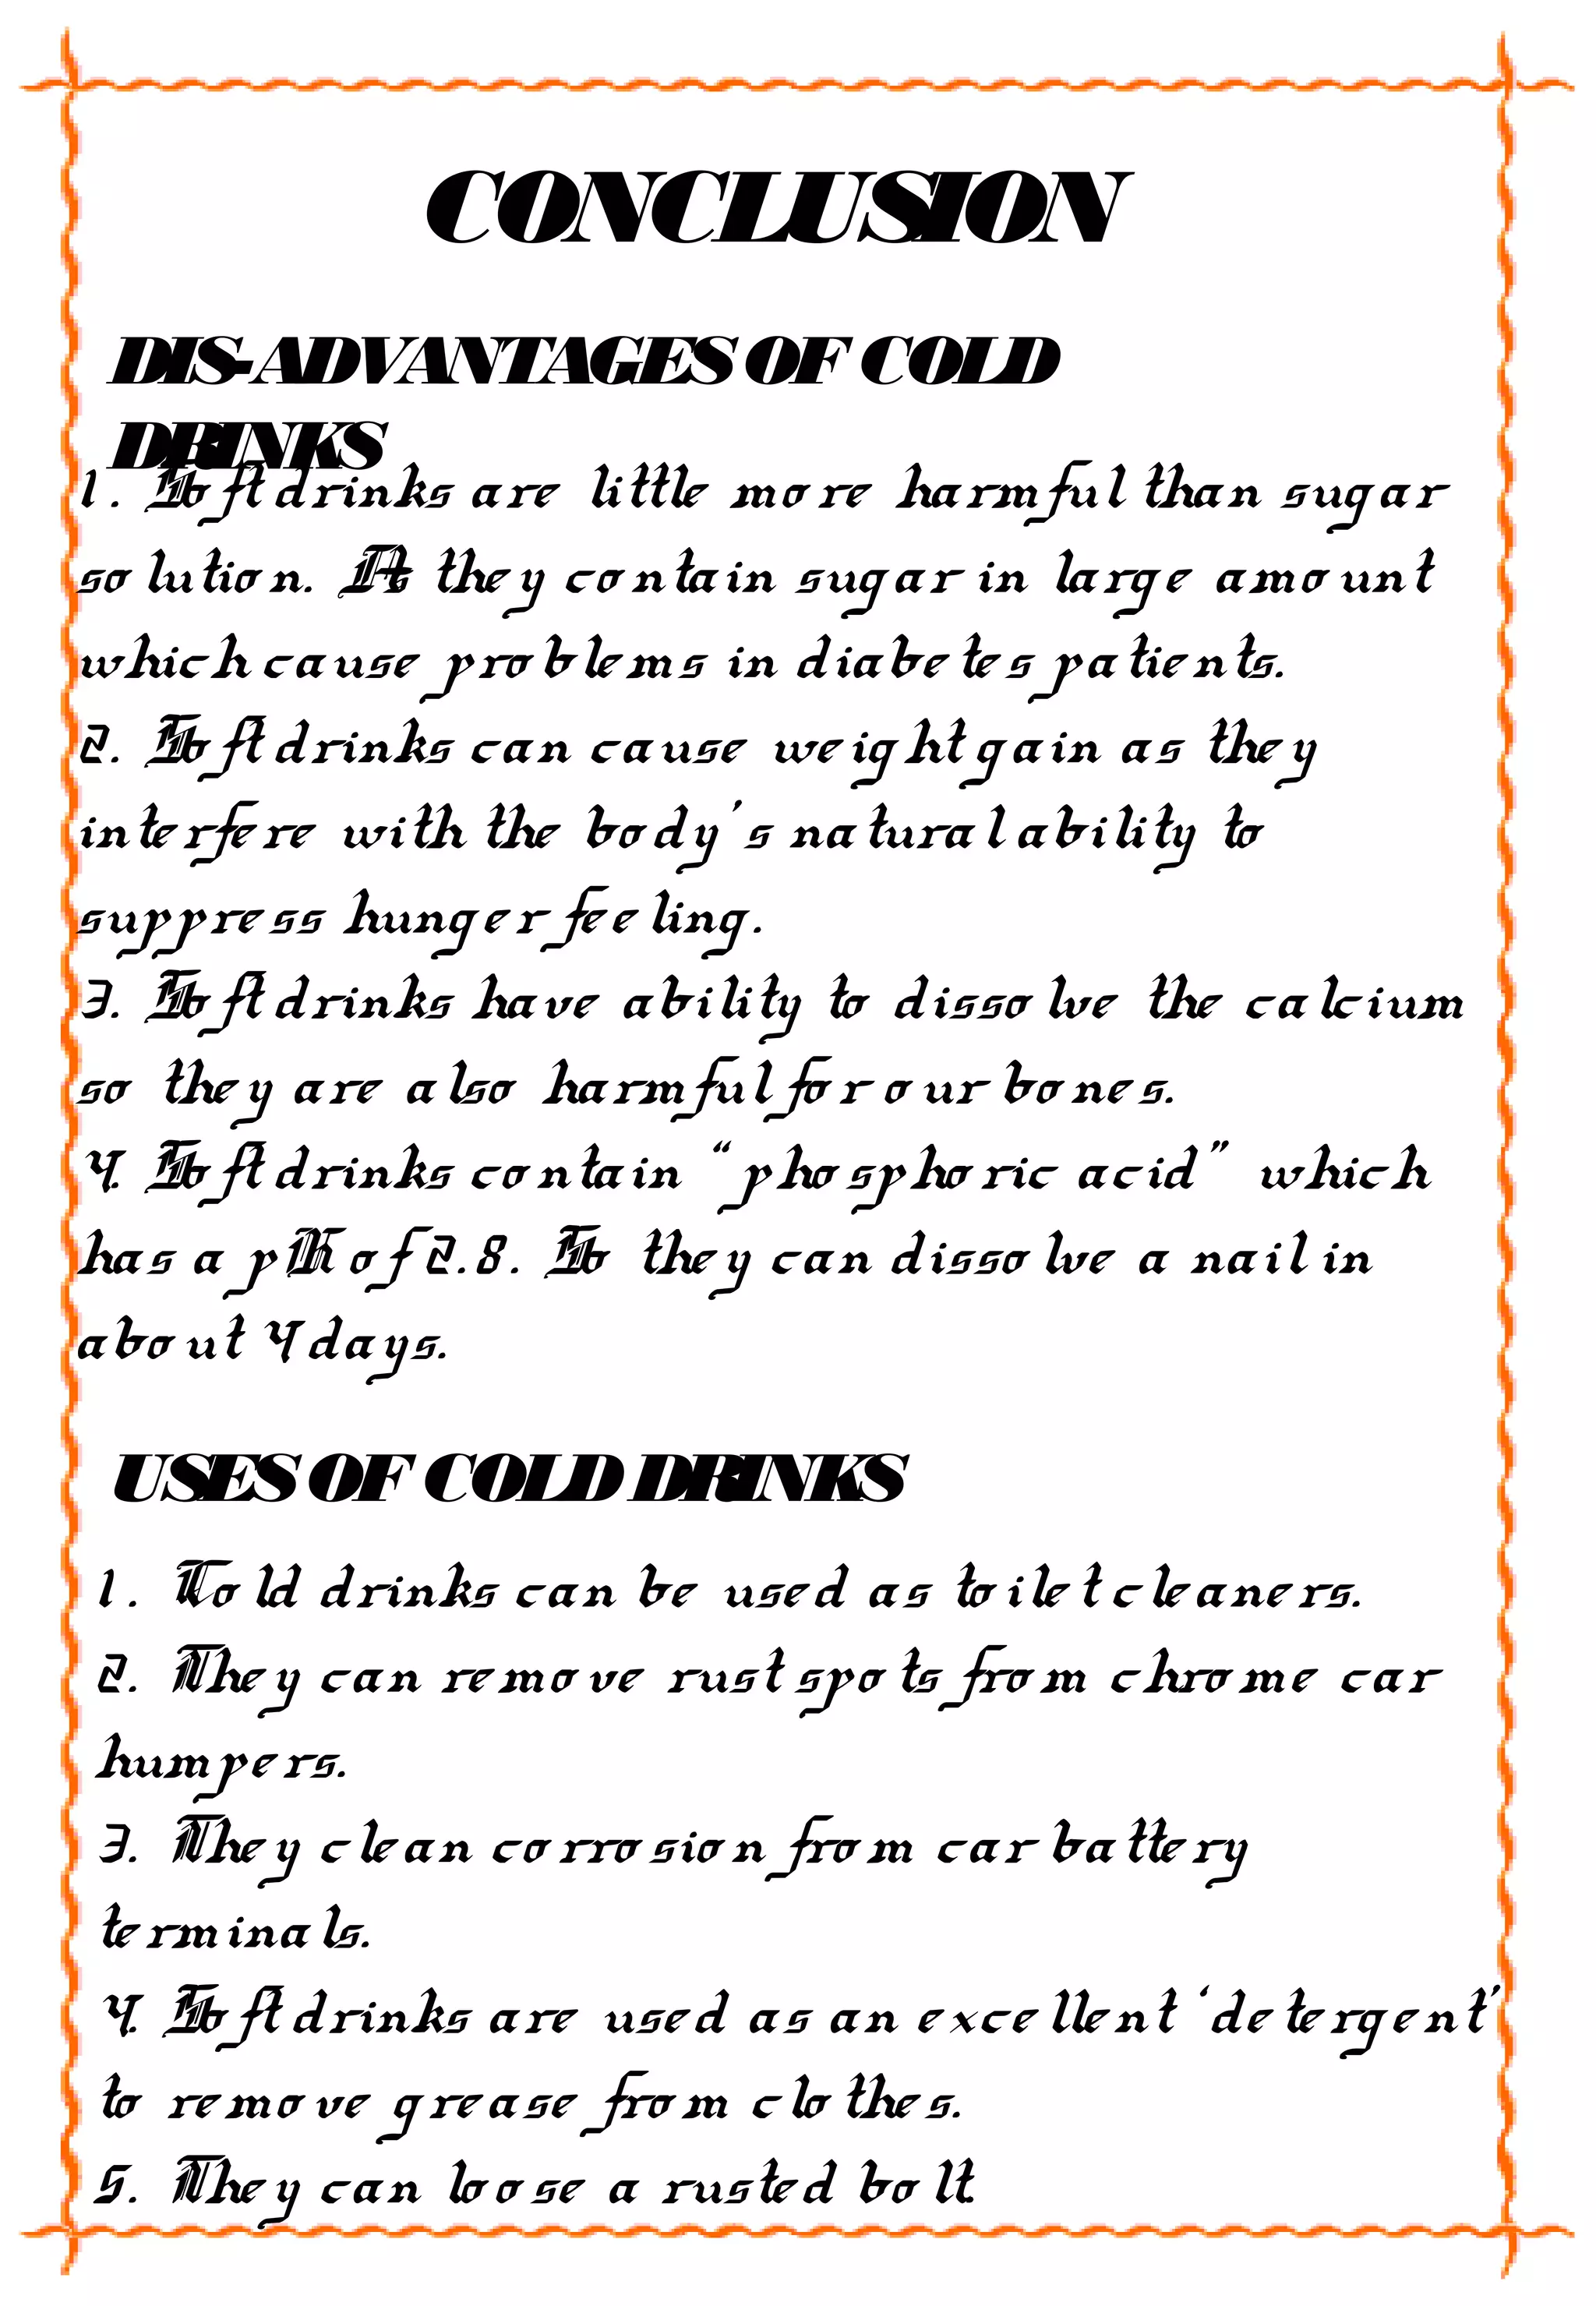 CONCLUSION
DIS-ADVANTAGES OF COLD
DRINKS
1. Soft drinks are little more harmful than sugar
solution. As they contain sugar in large amount
which cause problems in diabetes patients.
2. Soft drinks can cause weight gain as they
interfere with the body's natural ability to
suppress hunger feeling.
3. Soft drinks have ability to dissolve the calcium
so they are also harmful for our bones.
4. Soft drinks contain “phosphoric acid” which
has a pH of 2.8. So they can dissolve a nail in
about 4 days.
USES OF COLD DRINKS
1. Cold drinks can be used as toilet cleaners.
2. They can remove rust spots from chrome car
humpers.
3. They clean corrosion from car battery
terminals.
4. Soft drinks are used as an excellent ‘detergent’
to remove grease from clothes.
5. They can loose a rusted bolt.